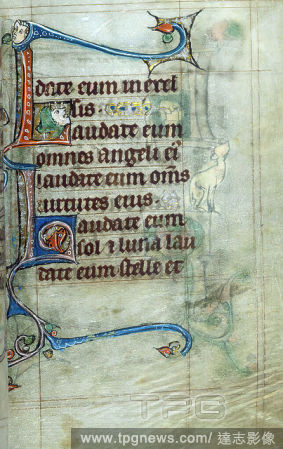 date eum in excel
sis.
Laudate eum
omnes angeli ei
laudate eum om̄s
uirtutes eius.
Laudate eum
sol ⁊ luna lau
date eum stelle et
TPG
www.tpgnews.com/ 達志影像